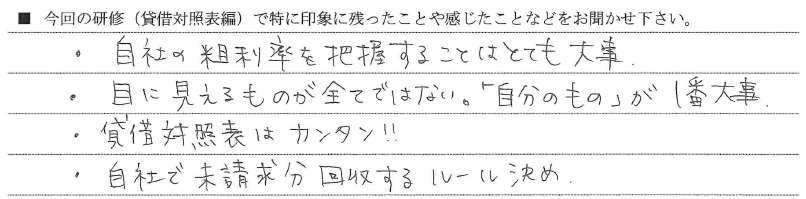 ■ 今回の研修（貸借対照表編）で特に印象に残ったことや感じたことなどをお聞かせ下さい。
・ 自社の粗利率を把握することはとても大事.
・ 目に見えるものが全てではない。「自分のもの」が1番大事.
・ 貸借対照表はカンタン!!
・ 自社で未請求分回収するルール決め.